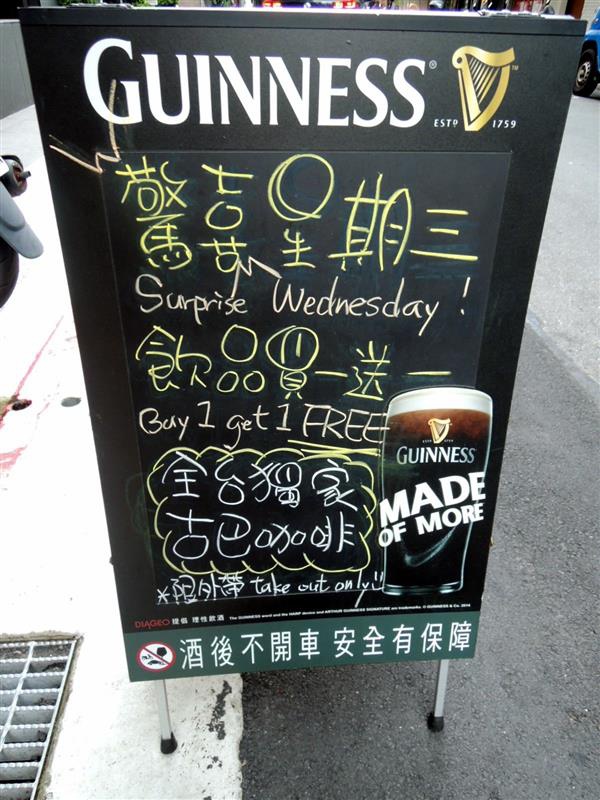 GUINNESS®
ESTD 1759 ™
驚喜星期三
Surprise Wednesday!
飲品買一送一
Buy 1 get 1 FREE
全台獨家
古巴咖啡
*限外帶 take out only!!
GUINNESS
MADE
OF MORE
DIAGEO 提倡 理性飲酒 The GUINNESS word and the HARP device and ARTHUR GUINNESS SIGNATURE are trademarks. © GUINNESS & Co. 2014
酒後不開車 安全有保障